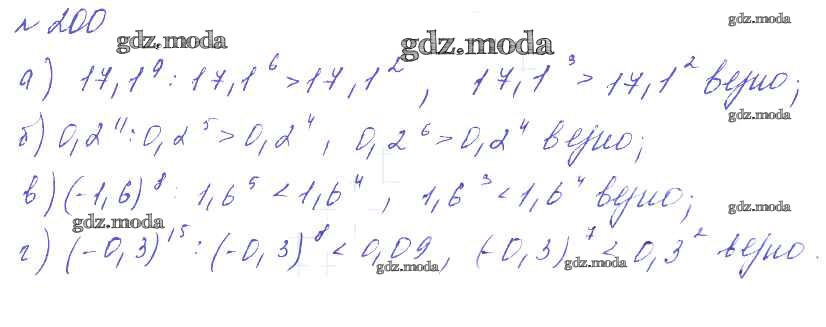 № 200
gdz.moda
gdz.moda
gdz.moda
а) 17,1⁹ : 17,1⁶ > 17,1², 17,1³ > 17,1² верно;
gdz.moda
б) 0,2¹¹ : 0,2⁵ > 0,2⁴, 0,2⁶ > 0,2⁴ верно;
в) (-1,6)⁸ : 1,6⁵ < 1,6⁴, 1,6³ < 1,6⁴ верно;
gdz.moda
gdz.moda
г) (-0,3)¹⁵ : (-0,3)⁸ < 0,09, (-0,3)⁷ < 0,3² верно.
gdz.moda
gdz.moda
gdz.moda